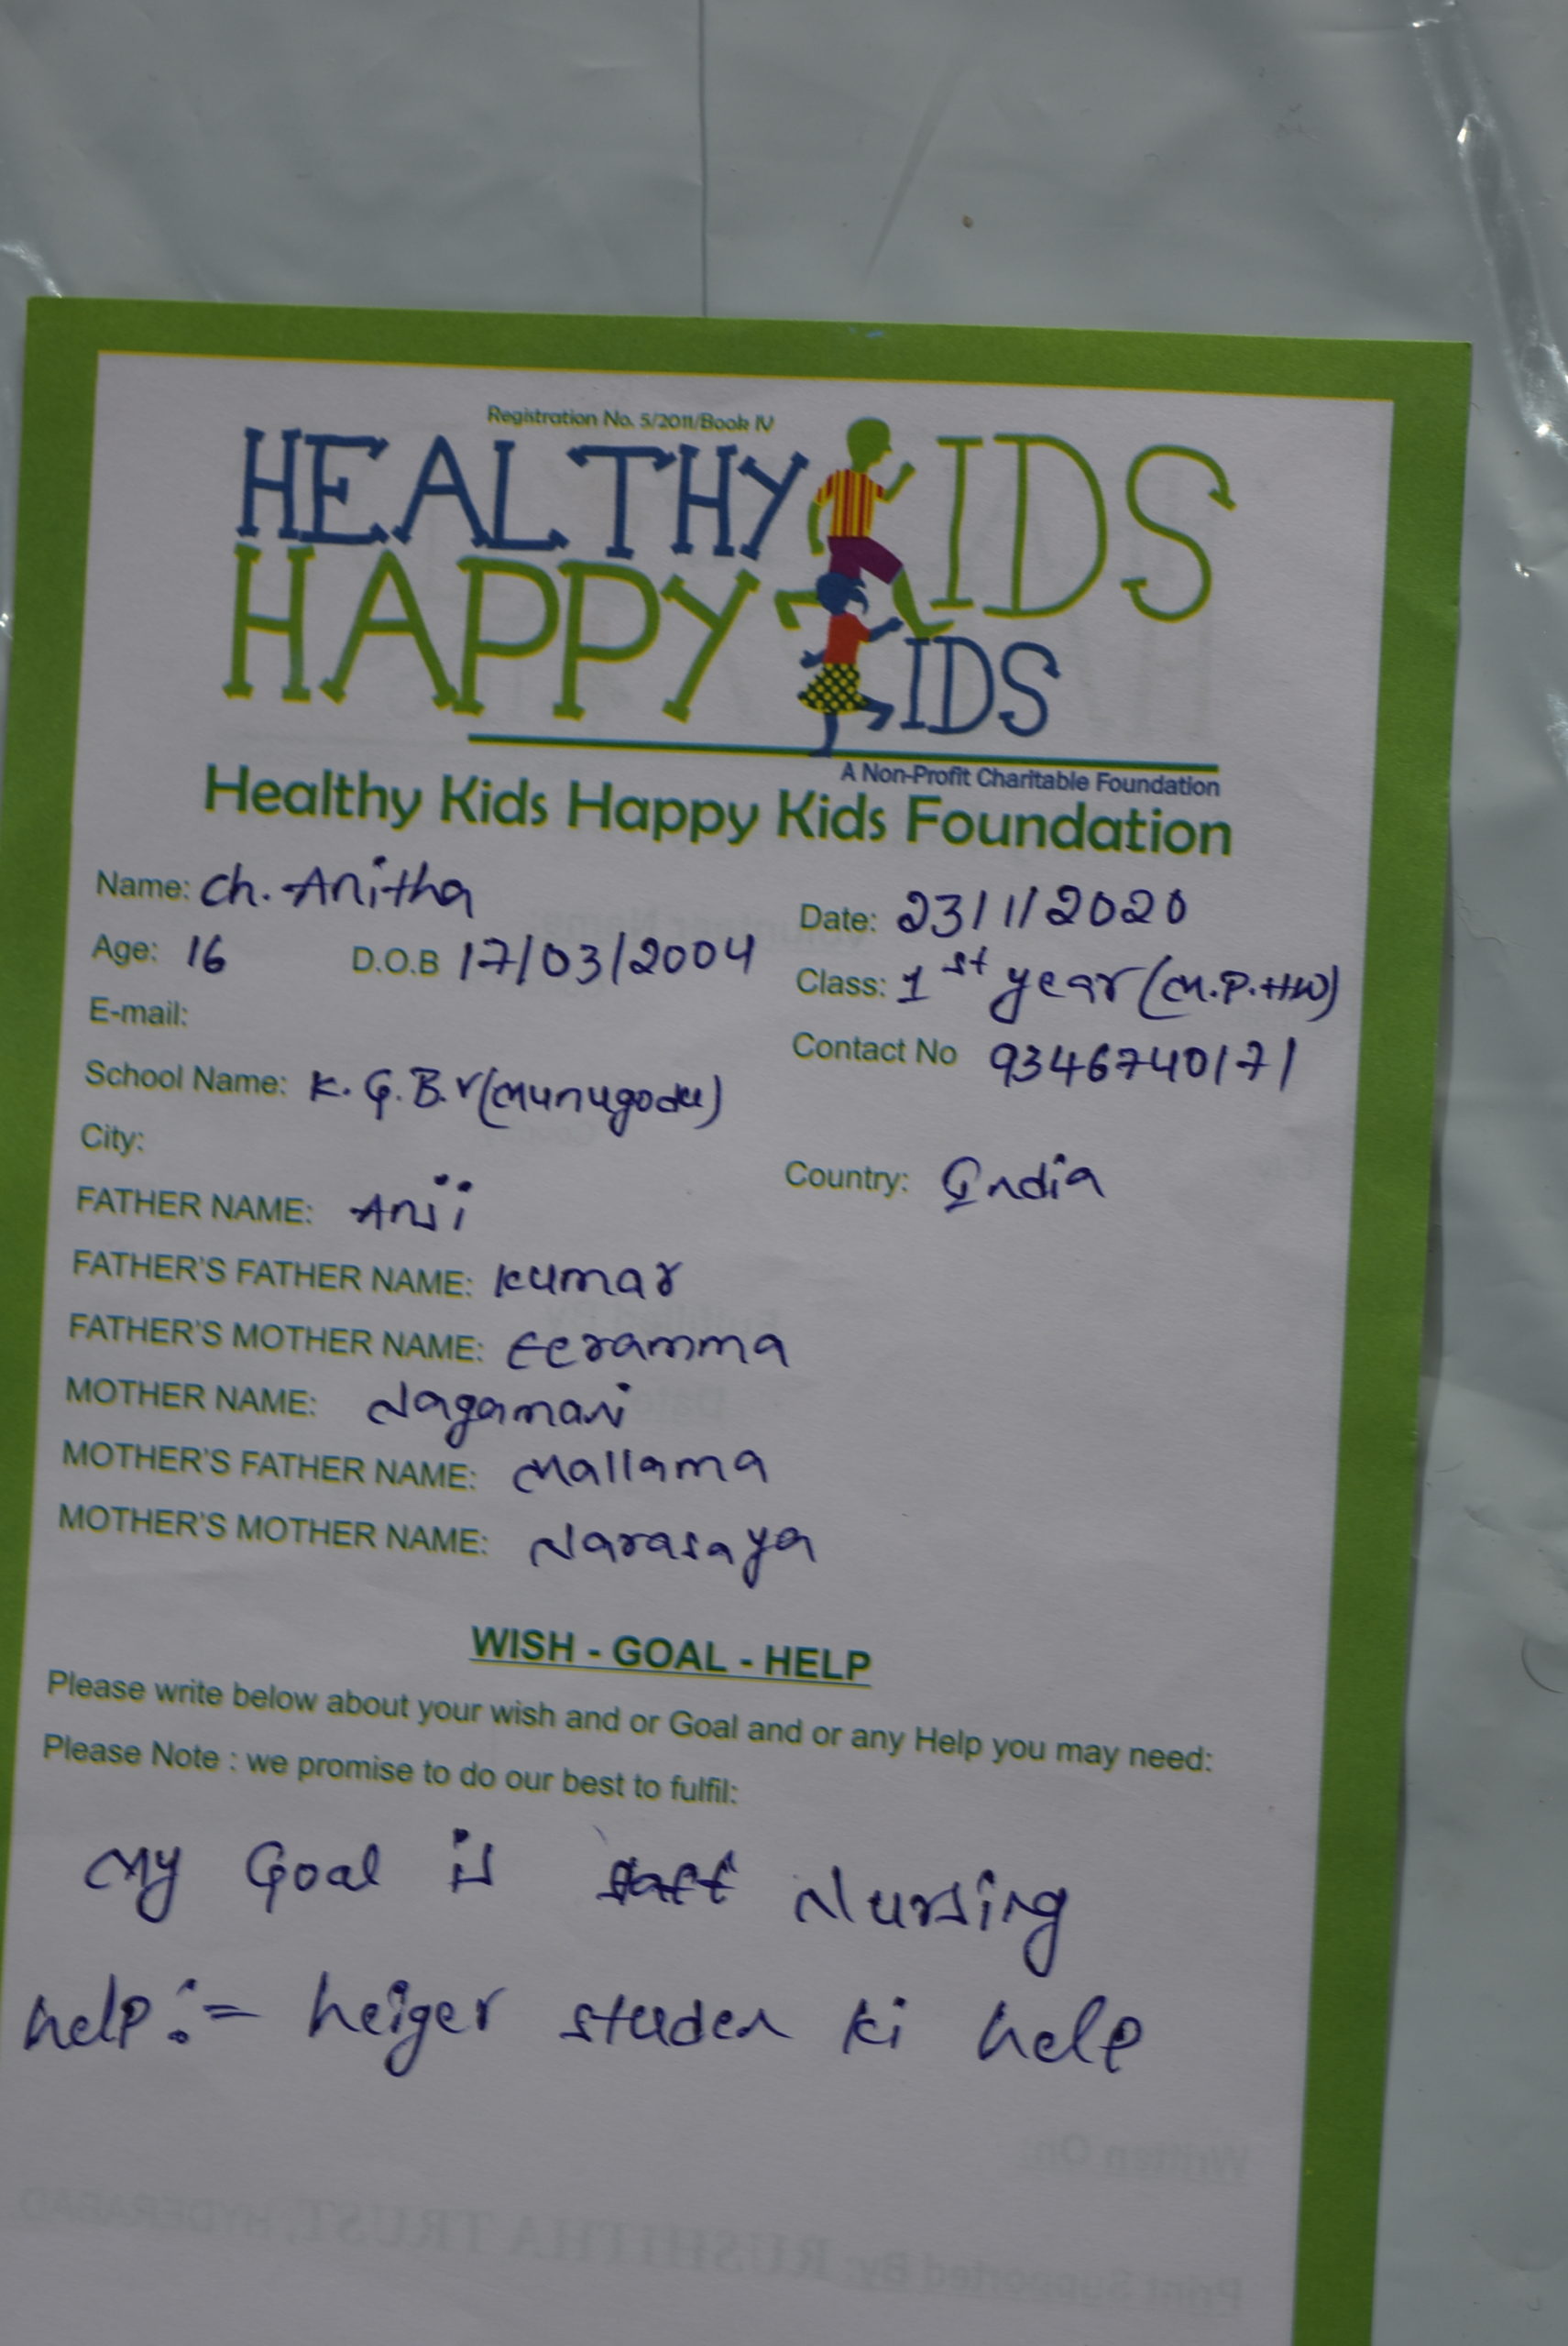 Registration No. 5/2011/Book IV
HEALTHY KIDS
HAPPY KIDS
A Non-Profit Charitable Foundation
Healthy Kids Happy Kids Foundation
Name: Ch. Anitha
Date: 23/1/2020
Age: 16 D.O.B 17/03/2004
Class: 1st year (M.P.HW)
E-mail:
Contact No 9346740171
School Name: K.G.B.V (Munugode)
City:
Country: India
FATHER NAME: Anji
FATHER'S FATHER NAME: Kumar
FATHER'S MOTHER NAME: Eeramma
MOTHER NAME: Nagamani
MOTHER'S FATHER NAME: Mallama
MOTHER'S MOTHER NAME: Narasaya
WISH - GOAL - HELP
Please write below about your wish and or Goal and or any Help you may need:
Please Note : we promise to do our best to fulfil:
My Goal is staff Nursing
help:- heiger studen ki help
Written On:
Print Supported By: RUSHITHA TRUST, HYDERABAD